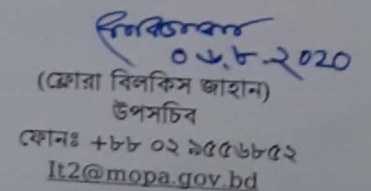 ০৬.৮.২০২০
(ফ্লোরা বিলকিস জাহান)
উপসচিব
ফোনঃ +৮৮ ০২ ৯৫৫৬৮৫২
It2@mopa.gov.bd